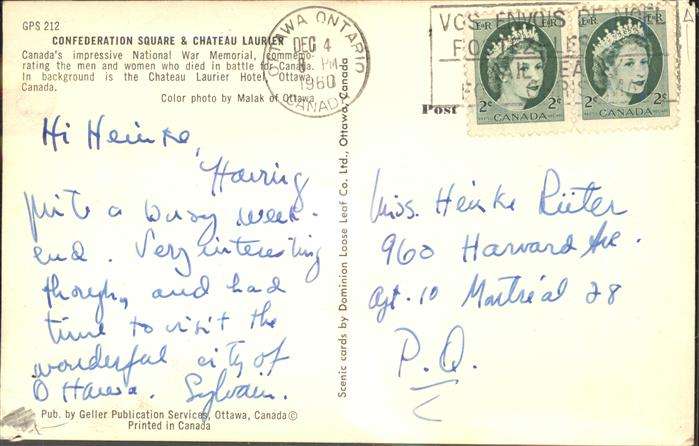 GPS 212
CONFEDERATION SQUARE & CHATEAU LAURIER
Canada's impressive National War Memorial, commemo-
rating the men and women who died in battle for Canada.
In background is the Chateau Laurier Hotel, Ottawa,
Canada.
Color photo by Malak of Ottawa
Hi Heinke,
Having
quite a busy week-
end. Very interesting
though, and had
time to visit the
wonderful city of
Ottawa. Sylvain.
Pub. by Geller Publication Services, Ottawa, Canada ©
Printed in Canada
Scenic cards by Dominion Loose Leaf Co. Ltd., Ottawa, Canada
OTTAWA ONTARIO
DEC 4
PM
1960
CANADA
VOS ENVOIS DE
Post
E II R E II R
2c 2c
CANADA
E II R E II R
2c 2c
CANADA
Miss. Heinke Rüter
960 Harvard Ave.
Apt. 10 Montréal 28
P.Q.